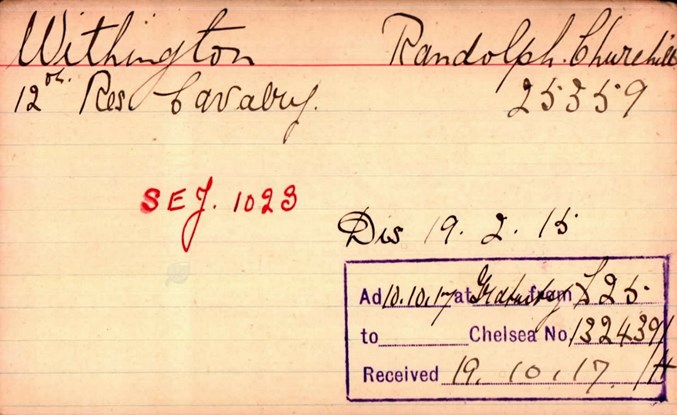 Withington Randolph. Churchill
12th. Res Cavalry. 25359
SEJ. 1023
Dis 19. 2. 15
Ad 10.10.17 at Gratuity from £25
to Chelsea No. 132439/
Received 19. 10. 17. /H